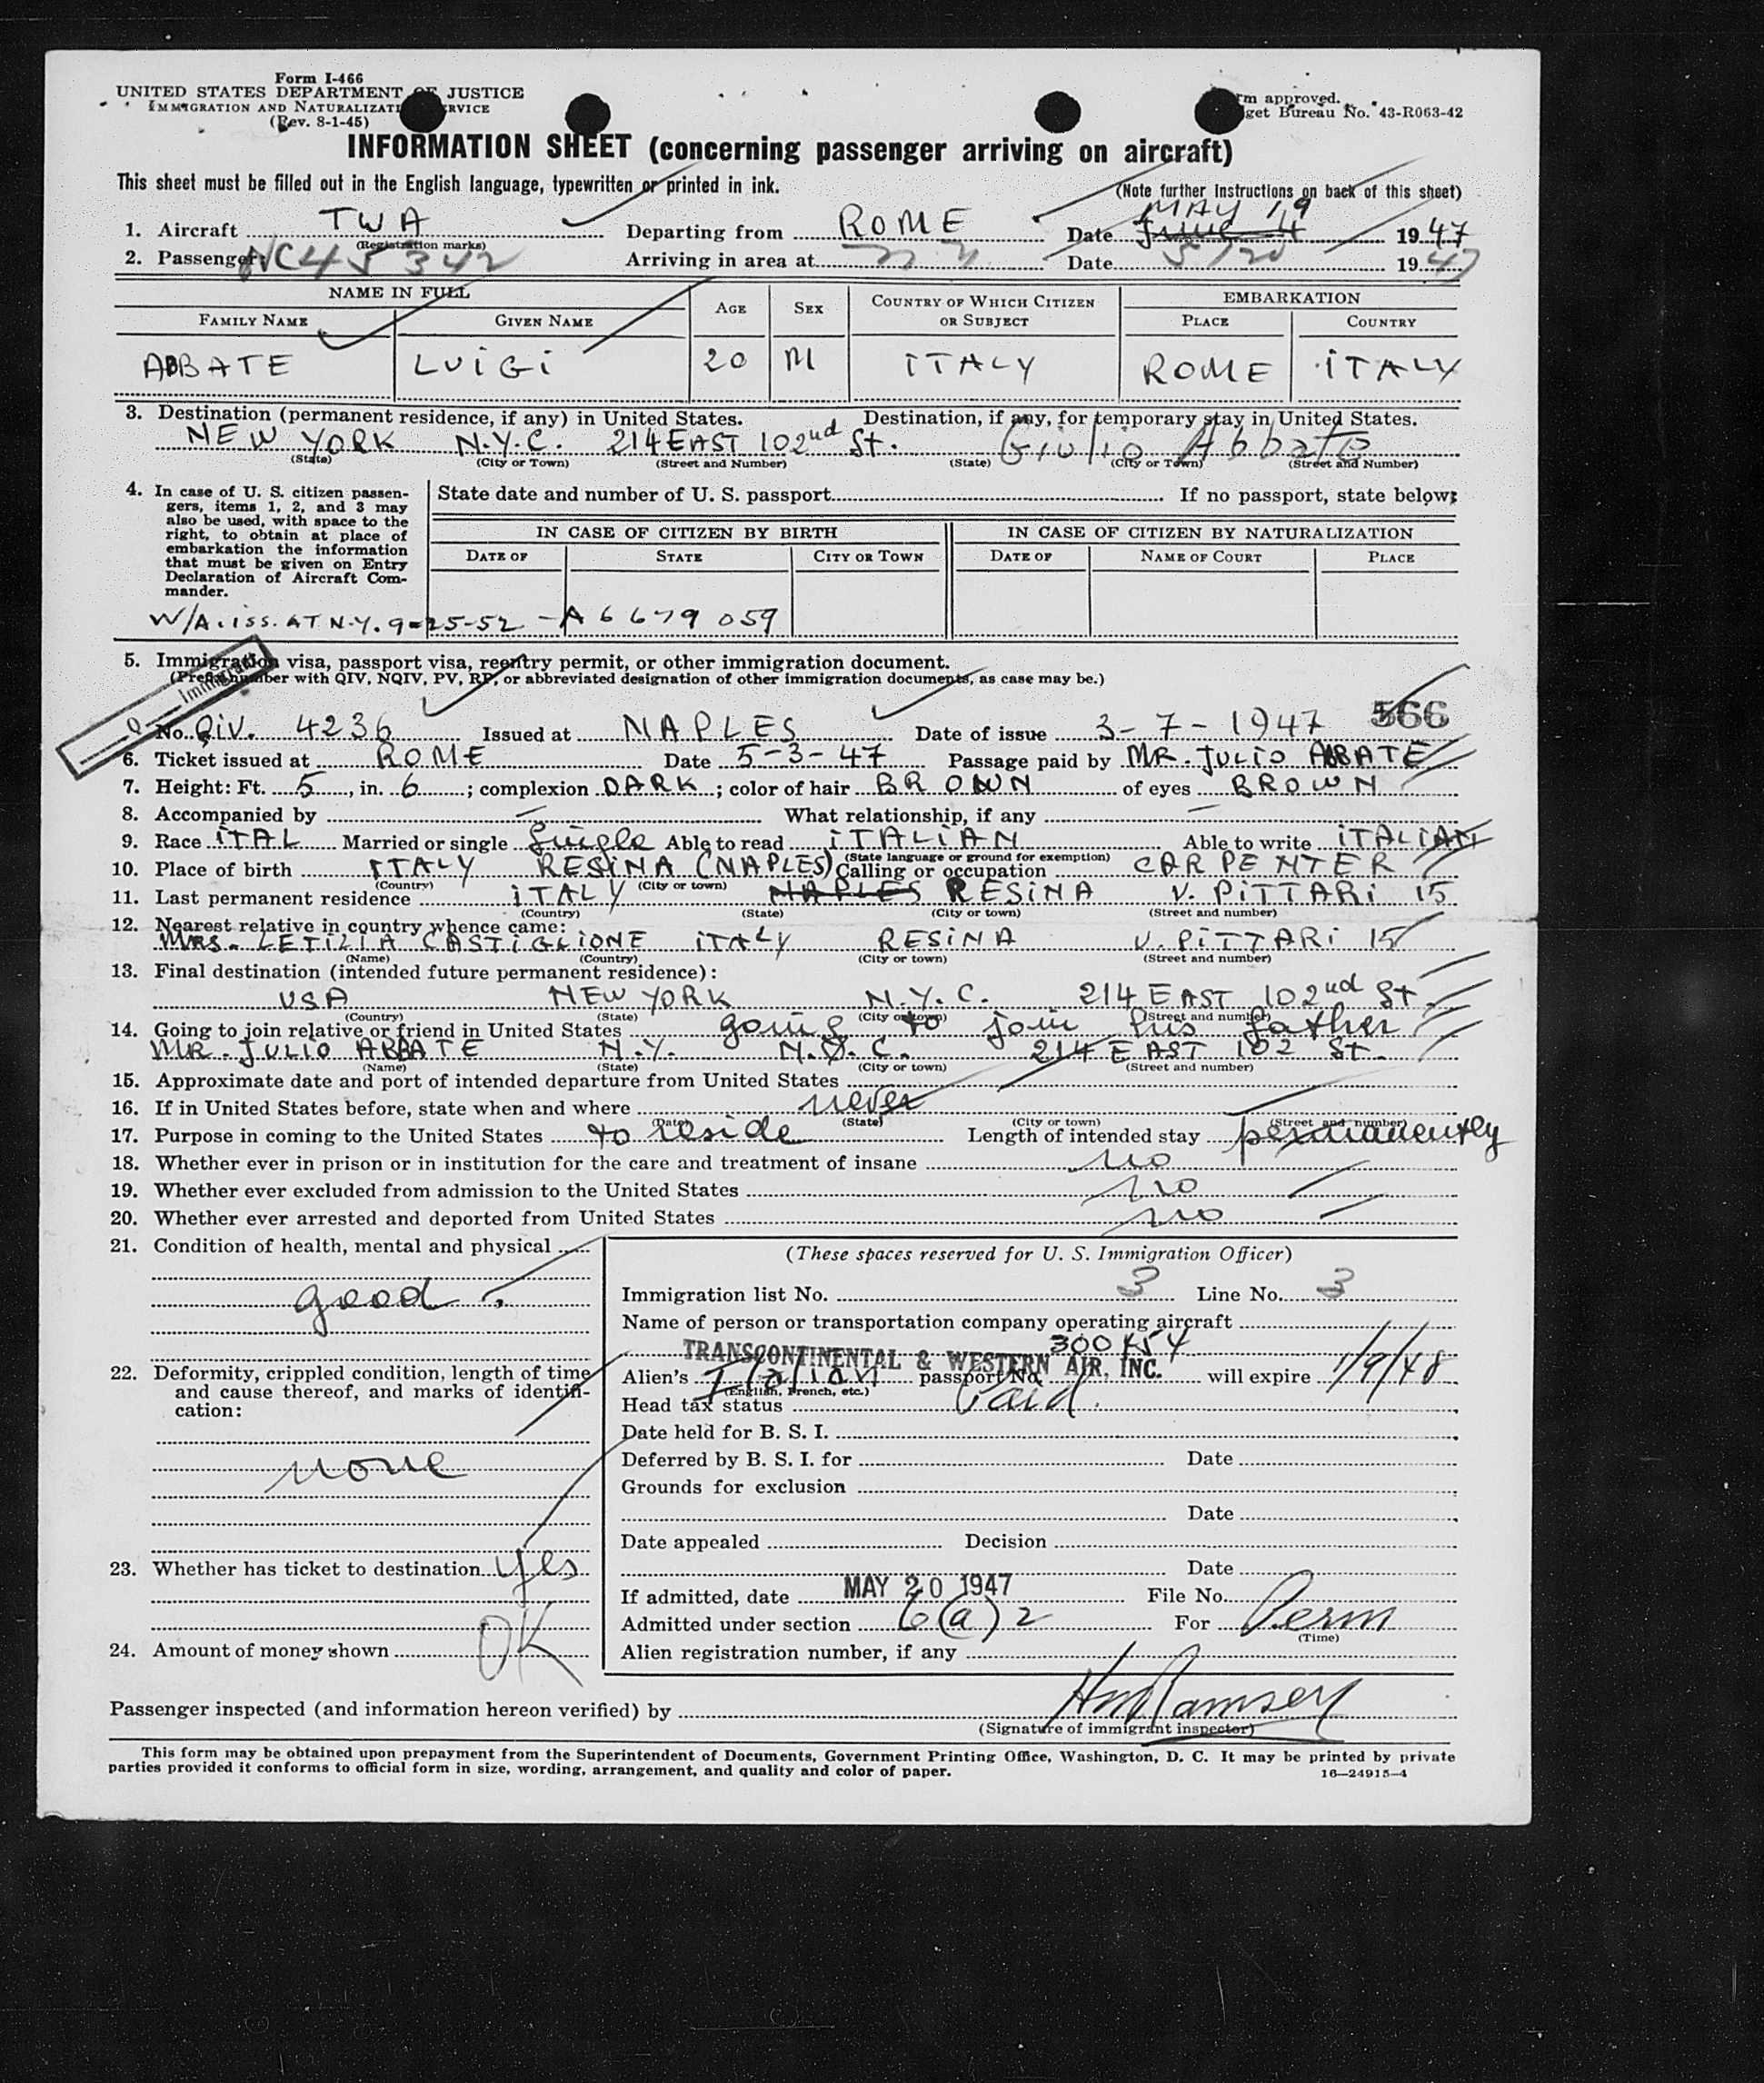 Form I-466
UNITED STATES DEPARTMENT OF JUSTICE
IMMIGRATION AND NATURALIZATION SERVICE
(Rev. 8-1-45)
Form approved.
Budget Bureau No. 43-R063-42
INFORMATION SHEET (concerning passenger arriving on aircraft)
This sheet must be filled out in the English language, typewritten or printed in ink.
(Note further instructions on back of this sheet)
MAY 19
1. Aircraft TWA Departing from ROME Date June 4 1947
(Registration marks)
2. Passenger: NC 45342 Arriving in area at Date 5/20 1947
NAME IN FULL AGE SEX COUNTRY OF WHICH CITIZEN OR SUBJECT EMBARKATION
FAMILY NAME GIVEN NAME PLACE COUNTRY
ABBATE LUIGI 20 M ITALY ROME ITALY
3. Destination (permanent residence, if any) in United States. Destination, if any, for temporary stay in United States.
NEW YORK N.Y.C. 214 EAST 102nd St. Giulio Abbate
(State) (City or Town) (Street and Number) (State) (City or Town) (Street and Number)
4. In case of U. S. citizen passengers, items 1, 2, and 3 may also be used, with space to the right, to obtain at place of embarkation the information that must be given on Entry Declaration of Aircraft Commander.
State date and number of U. S. passport If no passport, state below:
IN CASE OF CITIZEN BY BIRTH IN CASE OF CITIZEN BY NATURALIZATION
DATE OF STATE CITY OR TOWN DATE OF NAME OF COURT PLACE
W/A. iss. AT N.Y. 9-25-52 - A 6 679 059
5. Immigration visa, passport visa, reentry permit, or other immigration document.
(Prefix number with QIV, NQIV, PV, RP, or abbreviated designation of other immigration documents, as case may be.)
Q Immigrant
566
No. QIV. 4236 Issued at NAPLES Date of issue 3-7-1947
6. Ticket issued at ROME Date 5-3-47 Passage paid by MR. JULIO ABBATE
7. Height: Ft. 5, in. 6; complexion DARK; color of hair BROWN of eyes BROWN
8. Accompanied by — What relationship, if any —
9. Race ITAL Married or single Single Able to read ITALIAN Able to write ITALIAN
(State language or ground for exemption)
10. Place of birth ITALY RESINA (NAPLES) Calling or occupation CARPENTER
(Country) (City or town)
11. Last permanent residence ITALY NAPLES RESINA V. PITTARI 15
(Country) (State) (City or town) (Street and number)
12. Nearest relative in country whence came:
MRS. LETIZIA CASTIGLIONE ITALY RESINA V. PITTARI 15
(Name) (Country) (City or town) (Street and number)
13. Final destination (intended future permanent residence):
USA NEW YORK N.Y.C. 214 EAST 102nd St.
(Country) (State) (City or town) (Street and number)
14. Going to join relative or friend in United States going to join his father
MR. JULIO ABBATE N.Y. N.Y.C. 214 EAST 102 St.
(Name) (State) (City or town) (Street and number)
15. Approximate date and port of intended departure from United States
16. If in United States before, state when and where never
(Date) (State) (City or town) (Street and number)
17. Purpose in coming to the United States to reside Length of intended stay permanently
18. Whether ever in prison or in institution for the care and treatment of insane no
19. Whether ever excluded from admission to the United States no
20. Whether ever arrested and deported from United States no
21. Condition of health, mental and physical
good.
22. Deformity, crippled condition, length of time and cause thereof, and marks of identification:
none
23. Whether has ticket to destination yes
24. Amount of money shown OK
(These spaces reserved for U. S. Immigration Officer)
Immigration list No. 3 Line No. 3
Name of person or transportation company operating aircraft
TRANSCONTINENTAL & WESTERN AIR, INC.
300454
Alien's Italian passport No. will expire 1/9/48
(English, French, etc.)
Head tax status Paid.
Date held for B. S. I.
Deferred by B. S. I. for Date
Grounds for exclusion
Date
Date appealed Decision
Date
If admitted, date MAY 20 1947 File No.
Admitted under section 6(a)2 For Perm
(Time)
Alien registration number, if any
Passenger inspected (and information hereon verified) by HM Ramsey
(Signature of immigrant inspector)
This form may be obtained upon prepayment from the Superintendent of Documents, Government Printing Office, Washington, D. C. It may be printed by private
parties provided it conforms to official form in size, wording, arrangement, and quality and color of paper.
16—24915-4